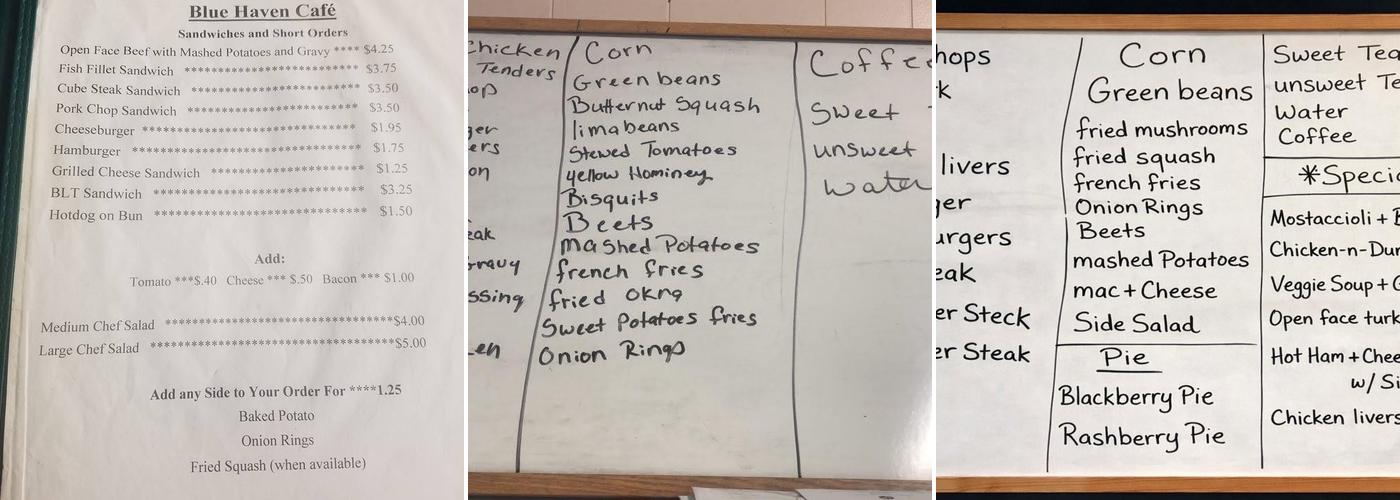 Blue Haven Café
Sandwiches and Short Orders
Open Face Beef with Mashed Potatoes and Gravy **** $4.25
Fish Fillet Sandwich **************************** $3.75
Cube Steak Sandwich *************************** $3.50
Pork Chop Sandwich **************************** $3.50
Cheeseburger *********************************** $1.95
Hamburger ************************************* $1.75
Grilled Cheese Sandwich ************************* $1.25
BLT Sandwich ********************************** $3.25
Hotdog on Bun ********************************** $1.50
Add:
Tomato ***$.40 Cheese *** $.50 Bacon *** $1.00
Medium Chef Salad *************************************$4.00
Large Chef Salad ****************************************$5.00
Add any Side to Your Order For ****1.25
Baked Potato
Onion Rings
Fried Squash (when available)
Chicken
Tenders
op
ger
ers
on
eak
ravy
ssing
en
Corn
Green beans
Butternut Squash
lima beans
Stewed Tomatoes
yellow Hominey
Bisquits
Beets
mashed Potatoes
french fries
fried okra
Sweet Potatoes fries
Onion Rings
Coffe
Sweet
unsweet
water
hops
k
livers
ger
urgers
eak
er Steck
er Steak
Corn
Green beans
fried mushrooms
fried squash
french fries
Onion Rings
Beets
mashed Potatoes
mac + Cheese
Side Salad
Pie
Blackberry Pie
Rashberry Pie
Sweet Tea
unsweet Te
Water
Coffee
*Specia
Mostaccioli + B
Chicken-n-Dur
Veggie Soup + G
Open face turk
Hot Ham + Chee
w/ Si
Chicken livers